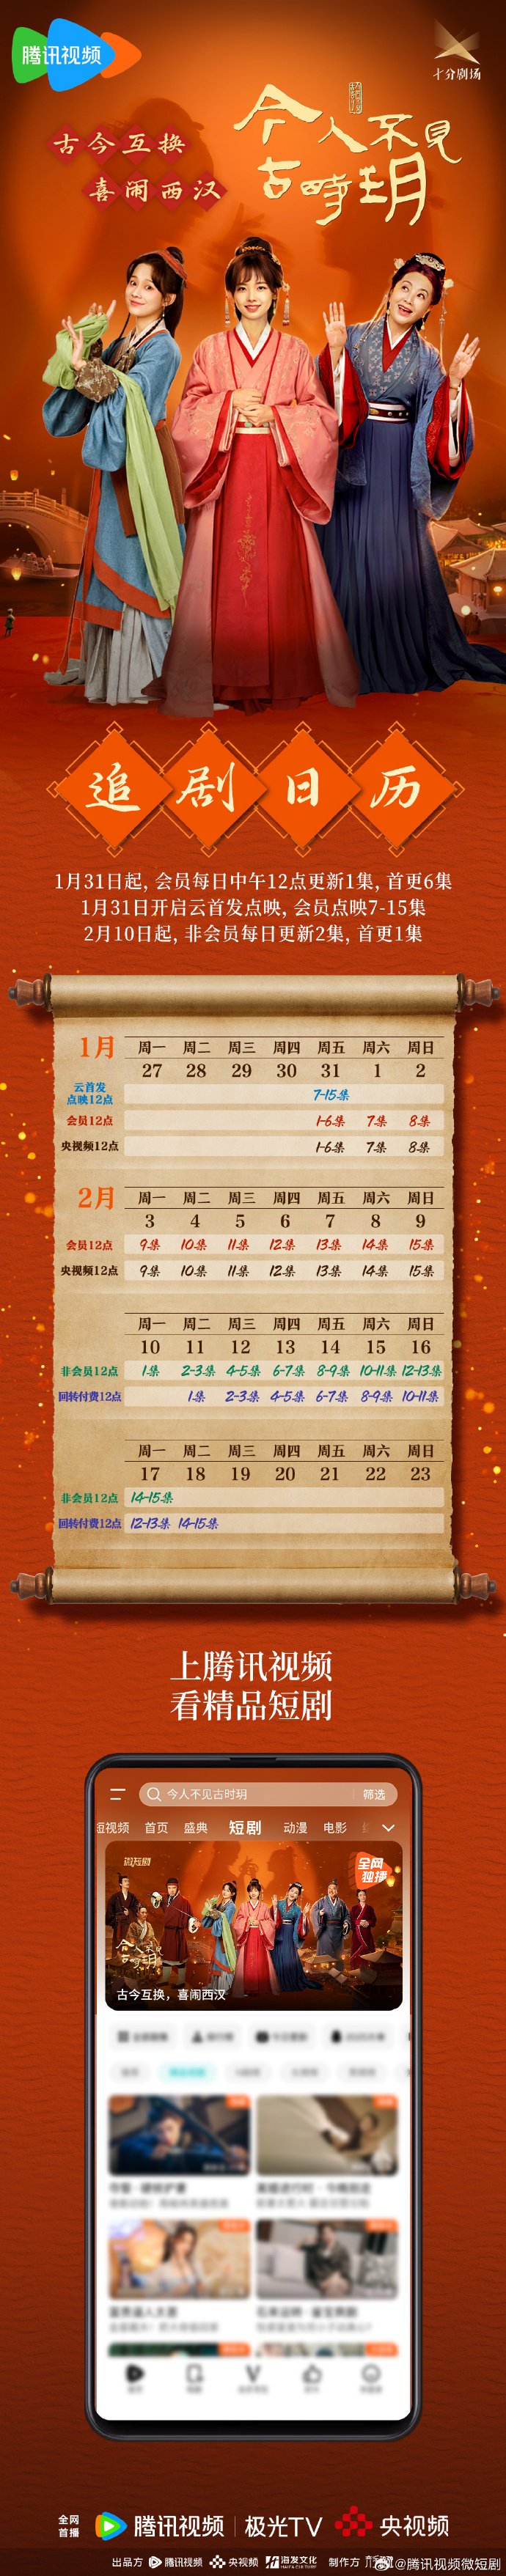 腾讯视频
十分剧场
今人不见
古时玥
古今互换
喜闹西汉
追剧日历
1月31日起, 会员每日中午12点更新1集, 首更6集
1月31日开启云首发点映, 会员点映7-15集
2月10日起, 非会员每日更新2集, 首更1集
1月 周一 周二 周三 周四 周五 周六 周日
27 28 29 30 31 1 2
云首发
点映12点 7-15集
会员12点 1-6集 7集 8集
央视频12点 1-6集 7集 8集
2月 周一 周二 周三 周四 周五 周六 周日
3 4 5 6 7 8 9
会员12点 9集 10集 11集 12集 13集 14集 15集
央视频12点 9集 10集 11集 12集 13集 14集 15集
周一 周二 周三 周四 周五 周六 周日
10 11 12 13 14 15 16
非会员12点 1集 2-3集 4-5集 6-7集 8-9集 10-11集 12-13集
回转付费12点 1集 2-3集 4-5集 6-7集 8-9集 10-11集
周一 周二 周三 周四 周五 周六 周日
17 18 19 20 21 22 23
非会员12点 14-15集
回转付费12点 12-13集 14-15集
上腾讯视频
看精品短剧
今人不见古时玥 筛选
短视频 首页 盛典 短剧 动漫 电影
微短剧
全网
独播
今人不见
古时玥
古今互换，喜闹西汉
全网
首播
腾讯视频 极光TV 央视频
出品方 腾讯视频 央视频 海发文化 制作方
@腾讯视频微短剧